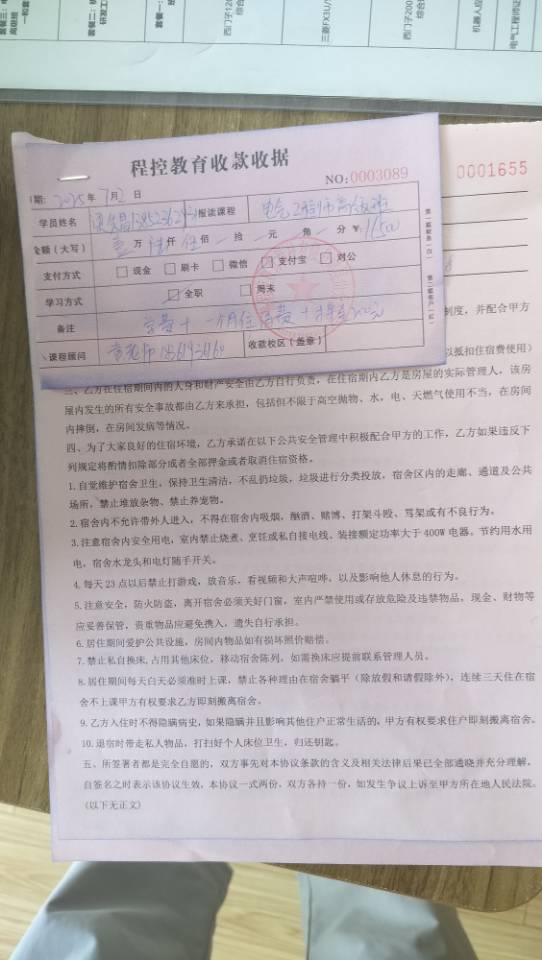 套餐三：
套餐二：
研发工
套餐一：
西门子120
综合
三菱FX3U/
西门子200
综合
机器人应
电气工程师证
程控教育收款收据
NO:0003089
0001655
期: 2025年 7月2日
学员姓名
报读课程 电气工程师高级班
金额（大写） 壹万 仟 伍佰 一拾 一元 一角 一分 ¥: 11500
支付方式 现金 刷卡 微信 支付宝 对公
学习方式 全职 周末
备注 学费+一个月住宿费+
课程顾问
收款校区（盖章）
制度，并配合甲方
以抵扣住宿费使用）
三、乙方在住宿期间内的人身和财产安全由乙方自行负责，在住宿期内乙方是房屋的实际管理人，该房
屋内发生的所有安全事故都由乙方来承担，包括但不限于高空抛物、水，电、天燃气使用不当，在房间
内摔倒，在房间发病等情况。
四、为了大家良好的住宿环境，乙方承诺在以下公共安全管理中积极配合甲方的工作，乙方如果违反下
列规定将酌情扣除部分或者全部押金或者取消住宿资格。
1.自觉维护宿舍卫生，保持卫生清洁，不乱扔垃圾，垃圾进行分类投放，宿舍区内的走廊、通道及公共
场所，禁止堆放杂物、禁止养宠物。
2.宿舍内不允许带外人进入，不得在宿舍内吸烟，酗酒、赌博、打架斗殴、骂架或有不良行为。
3.注意宿舍内安全用电，室内禁止烧煮、烹饪或私自接电线、装接额定功率大于400W电器。节约用水用
电，宿舍水龙头和电灯随手开关。
4.每天23点以后禁止打游戏，放音乐，看视频和大声喧哗，以及影响他人休息的行为。
5.注意安全，防火防盗，离开宿舍必须关好门窗，室内严禁使用或存放危险及违禁物品，现金、财物等
应妥善保管，贵重物品应避免携入，遗失自行承担。
6.居住期间爱护公共设施，房间内物品如有损坏照价赔偿。
7.禁止私自换床,占用其他床位，移动宿舍陈列，如需换床应提前联系管理人员。
8.居住期间每天白天必须准时上课，禁止各种理由在宿舍躺平（除放假和请假除外），连续三天住在宿
舍不上课甲方有权要求乙方即刻搬离宿舍。
9.乙方入住时不得隐瞒病史，如果隐瞒并且影响其他住户正常生活的，甲方有权要求住户即刻搬离宿舍。
10.退宿时带走私人物品，打扫好个人床位卫生，归还钥匙。
五、所签署者都是完全自愿的，双方事先对本协议条款的含义及相关法律后果已全部通晓并充分理解，
自签名之时表示该协议生效，本协议一式两份，双方各持一份，如发生争议上诉至甲方所在地人民法院。
（以下无正文）